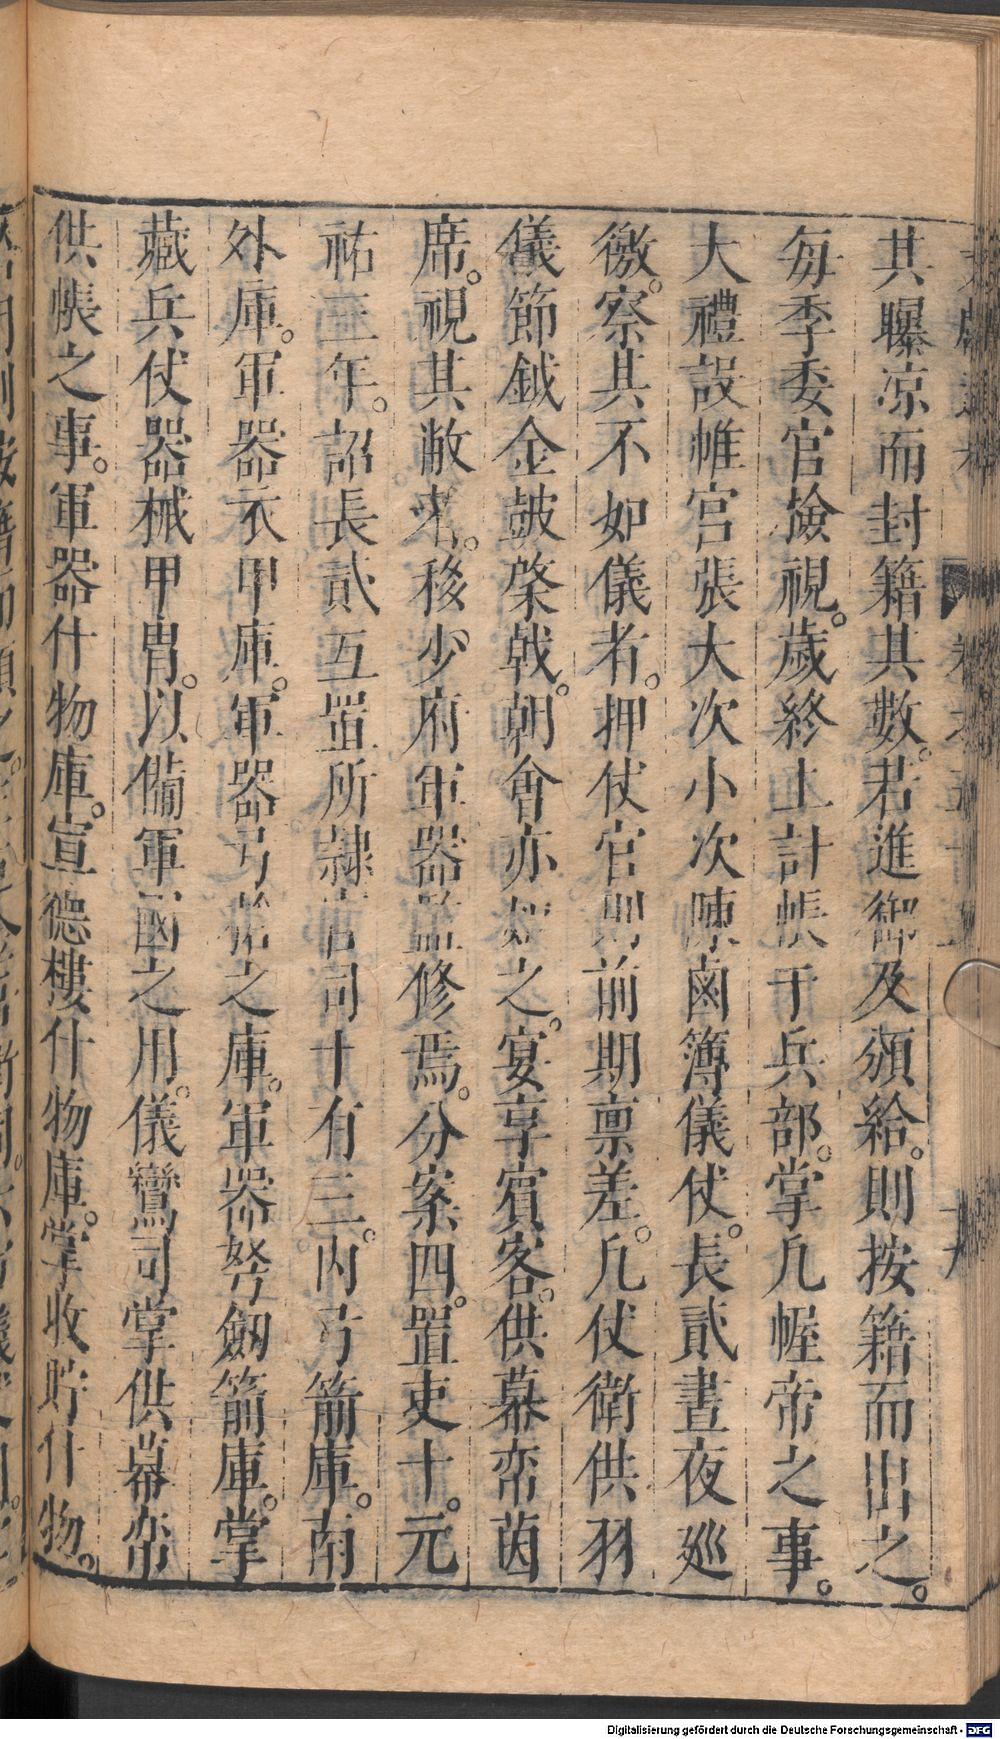 其曝凉而封籍其數。若進御及頒給。則按籍而出之。
每季委官撿視。歲終上計帳于兵部。掌凡幄帝之事。
大禮設帷宮張大次小次陳鹵簿儀仗。長貳晝夜巡
徼。察其不如儀者。押仗官則前期禀差。凡仗衛供羽
儀節鉞金鼓棨戟。朝會亦如之。宴享賓客。供幕帟茵
席。視其敝者。移少府軍器監修焉。分案四。置吏十。元
祐三年。詔長貳互置所隷官司十有三。内弓箭庫。南
外庫。軍器衣甲庫。軍器弓鎗之庫。軍器弩劔箭庫。掌
藏兵仗器械甲冑。以備軍國之用。儀鸞司掌供幕帟
供帳之事。軍器什物庫。宣德樓什物庫。掌收貯什物。
Digitalisierung gefördert durch die Deutsche Forschungsgemeinschaft - DFG